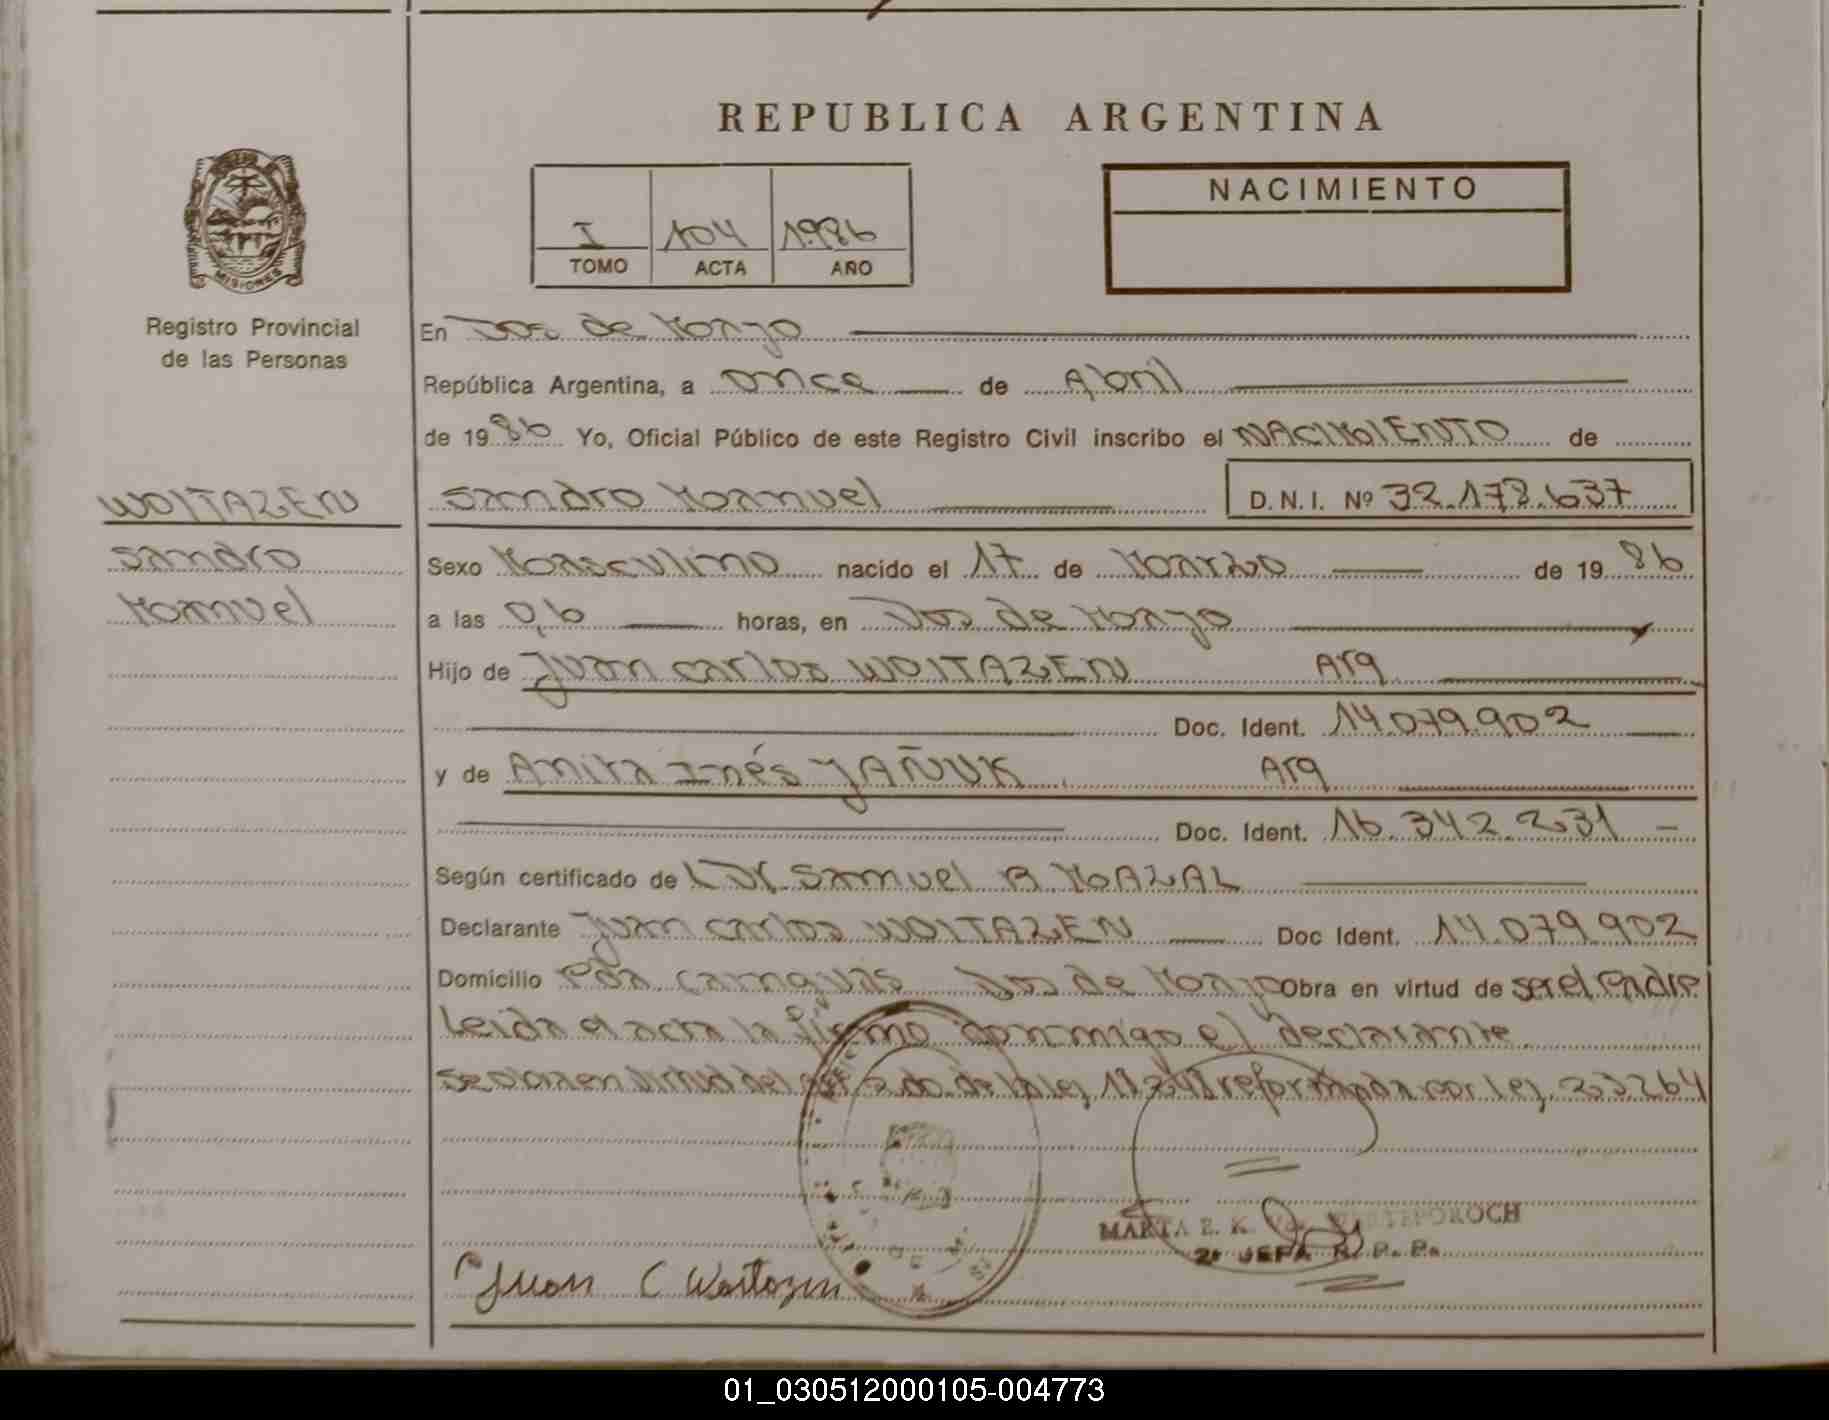 REPUBLICA ARGENTINA
MISIONES
Registro Provincial
de las Personas
I 104 1986
TOMO ACTA AÑO
NACIMIENTO
En Dos de Mayo
República Argentina, a once de Abril
de 1986 Yo, Oficial Público de este Registro Civil inscribo el NACIMIENTO de
WOITAZEN
Sandro
Manuel
Sandro Manuel D.N.I. Nº 32.178.637
Sexo Masculino nacido el 17 de Marzo de 1986
a las 0,6 horas, en Dos de Mayo
Hijo de Juan Carlos WOITAZEN Arg
Doc. Ident. 14.079.902
y de Anita Inés YAÑUK Arg
Doc. Ident. 16.342.231
Según certificado de Dr. Samuel MAZAL
Declarante Juan Carlos WOITAZEN Doc Ident. 14.079.902
Domicilio Dos de Mayo Obra en virtud de ser el Padre
Leida el acta la firmo conmigo el declarante
en virtud del de la ley reformada por ley 23264
MARTA E. K.
2ª JEFA R. P. P.
Juan C Woitazen
01_030512000105-004773